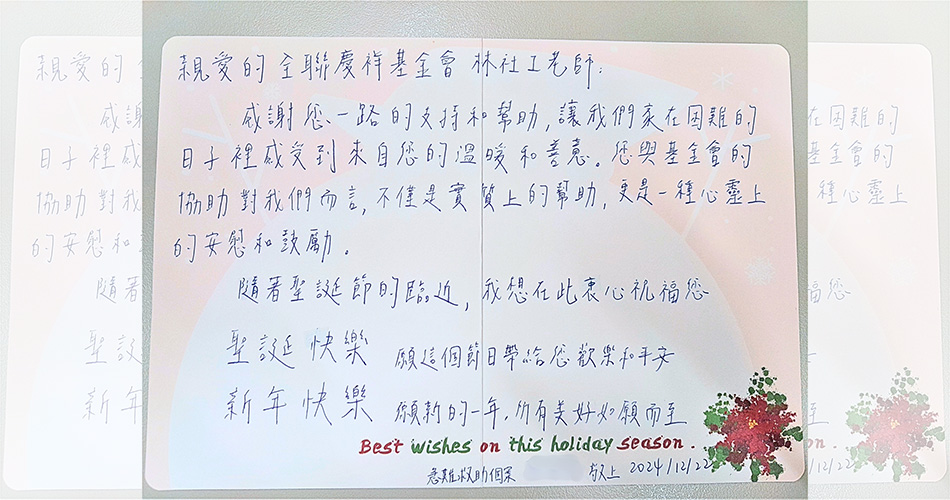 親愛的 全聯慶祥基金會 林社工老師:
感謝您一路的支持和幫助,讓我們家在困難的
日子裡感受到來自您的溫暖和善意。您與基金會的
協助對我們而言,不僅是實質上的幫助,更是一種心靈上
的安慰和鼓勵。
隨著聖誕節的臨近,我想在此衷心祝福您
聖誕快樂 願這個節日帶給您歡樂和平安
新年快樂 願新的一年,所有美好如願而至
Best wishes on this holiday season.
急難救助個案 敬上 2024/12/22